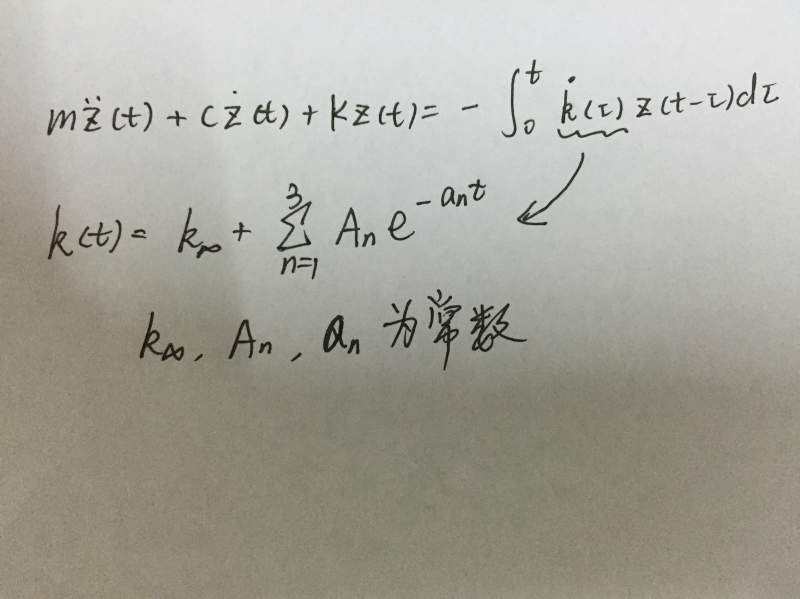 mz̈(t) + cż(t) + kz(t) = - ∫₀ᵗ k̇(τ) z(t-τ)dτ
k(t) = k∞ + Σₙ₌₁³ Aₙ e^(-aₙt)
k∞, Aₙ, aₙ 为常数